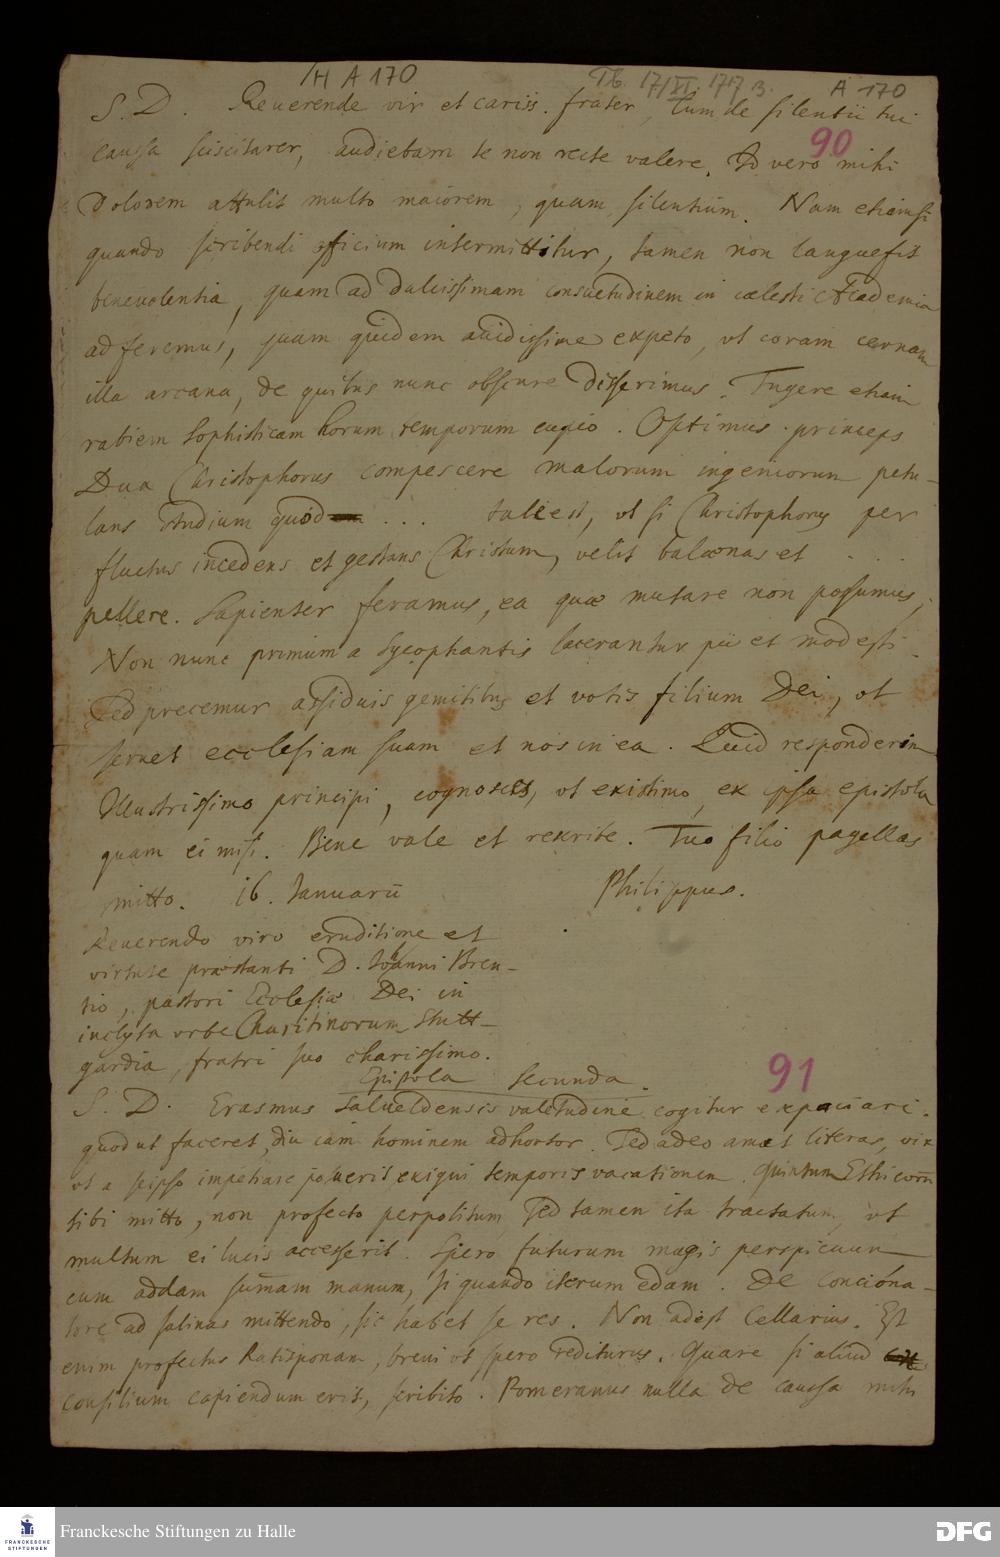 H A 170
Tb. 17/XI. 1717 B.
A 170
S. D. Reuerende vir et cariss. frater, Cum de silentii tui
90
caussa sciscitarer, audiebam te non recte valere. Id vero mihi
dolorem attulit multo maiorem, quam silentium. Nam etiamsi
quando scribendi officium intermittitur, tamen non languefit
beneuolentia, quam ad dulcissimam consuetudinem in cœlesti Academia
adferemus, quam quidem auidissime expeto, vt coram cernam
illa arcana, de quibus nunc obscure disserimus. Fugere etiam
rabiem Sophisticam horum temporum cupio. Optimus princeps
Dux Christophorus compescere malorum ingeniorum petu-
lans studium quod ... tale est, vt si Christophorus per
fluctus incedens et gestans Christum, velit balænas et . . .
pellere. Sapienter feramus, ea quæ mutare non possumus,
Non nunc primum a Sycophantis lacerantur pii et modesti.
Sed precemur assiduis gemitibus et votis filium Dei, vt
seruet ecclesiam suam et nos in ea. Quid responderim
Illustrissimo principi, cognosces, vt existimo, ex ipsa epistola
quam ei misi. Bene vale et rescribe. Tuo filio pagellas
mitto. 16. Januarii Philippus.
Reuerendo viro eruditione et
virtute præstanti D. Johanni Bren-
tio, pastori Ecclesiæ Dei in
inclyta vrbe Charitinorum Stutt-
gardia, fratri suo charissimo.
Epistola secunda.
91
S. D. Erasmus Salueldensis valetudine cogitur expaciari.
quod ut faceret, diu iam hominem adhortor. Sed adeo amat literas, vix
vt a seipso impetrare potuerit exigui temporis vacationem. Quintum Ethicorum
tibi mitto, non profecto perpolitum, sed tamen ita tractatum, vt
multum ei lucis accesserit. Spero futurum magis perspicuum
cum addam sum̄am manum, si quando iterum edam. De conciona-
tore ad salinas mittendo, sic habet se res. Non adest Cellarius. Est
enim profectus Ratisponam, breui vt spero rediturus. Quare si aliud
consilium capiendum erit, scribito. Pomeranus nulla de caussa mihi
Franckesche Stiftungen zu Halle
FRANCKESCHE
STIFTUNGEN
DFG